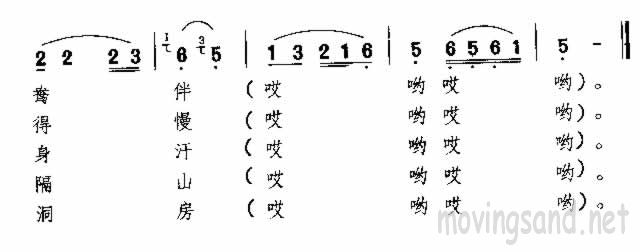 2 2 2 3 | 6 5 | 1 3 2 1 6 | 5 6 5 6 1 | 5 - ‖
鸯 伴 (哎 哟 哎 哟)。
得 慢 (哎 哟 哎 哟)。
身 汗 (哎 哟 哎 哟)。
隔 山 (哎 哟 哎 哟)。
洞 房 (哎 哟 哎 哟)。
movingsand.net